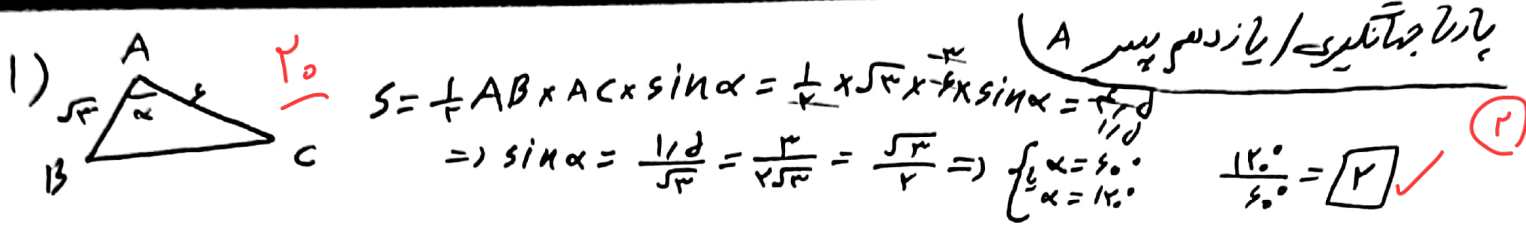 پارسا جهانگیری / یازدهم پسر A
۲۰
1) A √۳ α ۶ B C
S = ۱/۲ AB × AC × sin α = ۱/۲ × √۳ × ۶ ۳ × sin α = ۴٫۵ ۱٫۵
۲
=> sin α = ۱٫۵/√۳ = ۳/۲√۳ = √۳/۲ => { α = ۶۰° یا α = ۱۲۰° ۱۲۰°/۶۰° = ۲ ✓